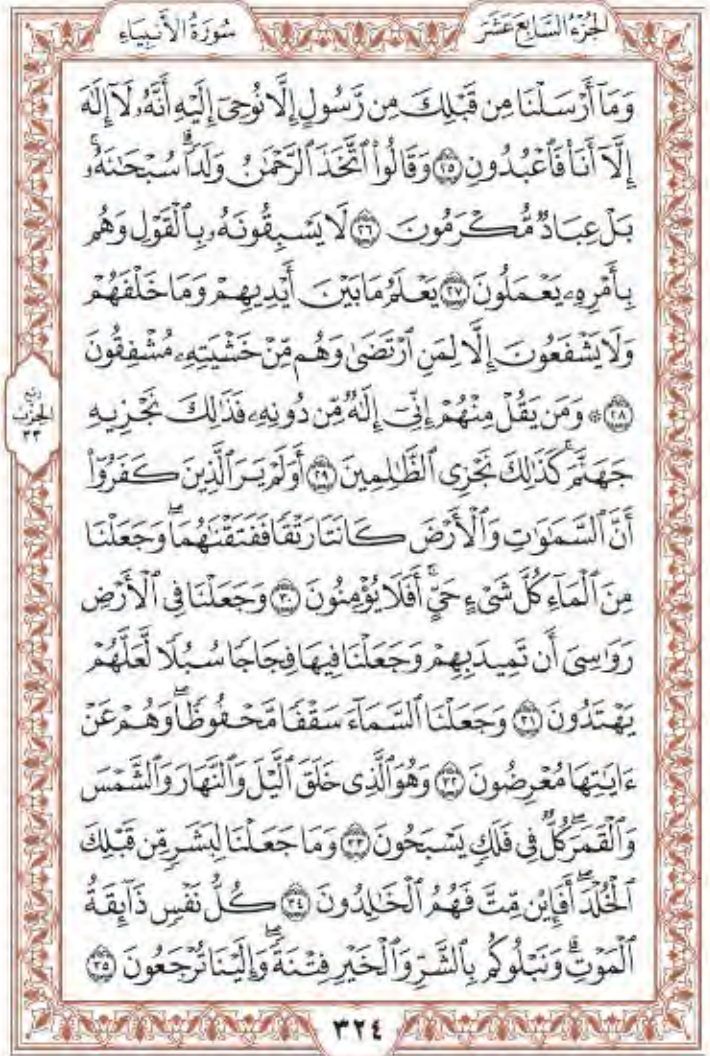 الجُزْءُ السَّابِعَ عَشَرَ
سُورَةُ الأَنبِيَاءِ
وَمَآ أَرْسَلْنَا مِن قَبْلِكَ مِن رَّسُولٍ إِلَّا نُوحِىٓ إِلَيْهِ أَنَّهُۥ لَآ إِلَٰهَ
إِلَّآ أَنَا۠ فَٱعْبُدُونِ ٢٥ وَقَالُوا۟ ٱتَّخَذَ ٱلرَّحْمَٰنُ وَلَدًا ۗ سُبْحَٰنَهُۥ ۚ
بَلْ عِبَادٌ مُّكْرَمُونَ ٢٦ لَا يَسْبِقُونَهُۥ بِٱلْقَوْلِ وَهُم
بِأَمْرِهِۦ يَعْمَلُونَ ٢٧ يَعْلَمُ مَا بَيْنَ أَيْدِيهِمْ وَمَا خَلْفَهُمْ
وَلَا يَشْفَعُونَ إِلَّا لِمَنِ ٱرْتَضَىٰ وَهُم مِّنْ خَشْيَتِهِۦ مُشْفِقُونَ
٢٨ ۞ وَمَن يَقُلْ مِنْهُمْ إِنِّىٓ إِلَٰهٌ مِّن دُونِهِۦ فَذَٰلِكَ نَجْزِيهِ
جَهَنَّمَ ۚ كَذَٰلِكَ نَجْزِى ٱلظَّٰلِمِينَ ٢٩ أَوَلَمْ يَرَ ٱلَّذِينَ كَفَرُوٓا۟
أَنَّ ٱلسَّمَٰوَٰتِ وَٱلْأَرْضَ كَانَتَا رَتْقًا فَفَتَقْنَٰهُمَا ۖ وَجَعَلْنَا
مِنَ ٱلْمَآءِ كُلَّ شَىْءٍ حَىٍّ ۖ أَفَلَا يُؤْمِنُونَ ٣٠ وَجَعَلْنَا فِى ٱلْأَرْضِ
رَوَٰسِىَ أَن تَمِيدَ بِهِمْ وَجَعَلْنَا فِيهَا فِجَاجًا سُبُلًا لَّعَلَّهُمْ
يَهْتَدُونَ ٣١ وَجَعَلْنَا ٱلسَّمَآءَ سَقْفًا مَّحْفُوظًا ۖ وَهُمْ عَنْ
ءَايَٰتِهَا مُعْرِضُونَ ٣٢ وَهُوَ ٱلَّذِى خَلَقَ ٱلَّيْلَ وَٱلنَّهَارَ وَٱلشَّمْسَ
وَٱلْقَمَرَ ۖ كُلٌّ فِى فَلَكٍ يَسْبَحُونَ ٣٣ وَمَا جَعَلْنَا لِبَشَرٍ مِّن قَبْلِكَ
ٱلْخُلْدَ ۖ أَفَإِي۟ن مِّتَّ فَهُمُ ٱلْخَٰلِدُونَ ٣٤ كُلُّ نَفْسٍ ذَآئِقَةُ
ٱلْمَوْتِ ۗ وَنَبْلُوكُم بِٱلشَّرِّ وَٱلْخَيْرِ فِتْنَةً ۖ وَإِلَيْنَا تُرْجَعُونَ ٣٥
ربع
الحزب
٣٣
٣٢٤